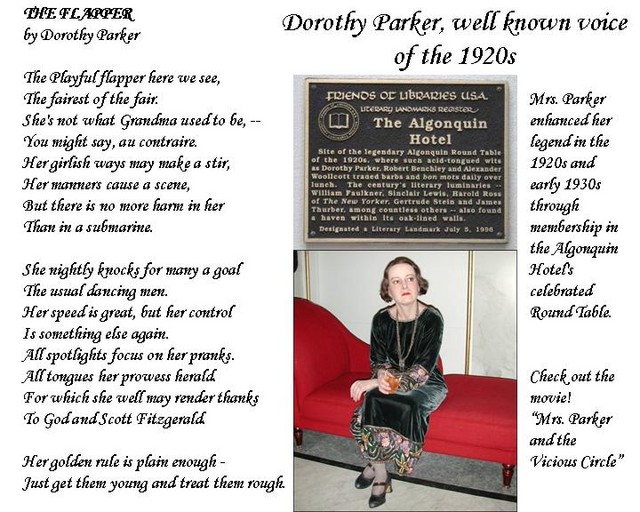 THE FLAPPER
by Dorothy Parker
The Playful flapper here we see,
The fairest of the fair.
She's not what Grandma used to be, --
You might say, au contraire.
Her girlish ways may make a stir,
Her manners cause a scene,
But there is no more harm in her
Than in a submarine.
She nightly knocks for many a goal
The usual dancing men.
Her speed is great, but her control
Is something else again.
All spotlights focus on her pranks.
All tongues her prowess herald.
For which she well may render thanks
To God and Scott Fitzgerald.
Her golden rule is plain enough -
Just get them young and treat them rough.
Dorothy Parker, well known voice
of the 1920s
FRIENDS OF LIBRARIES U.S.A.
LITERARY LANDMARKS REGISTER
The Algonquin
Hotel
Site of the legendary Algonquin Round Table
of the 1920s, where such acid-tongued wits
as Dorothy Parker, Robert Benchley and Alexander
Woollcott traded barbs and bon mots daily over
lunch. The century's literary luminaries --
William Faulkner, Sinclair Lewis, Harold Ross
of The New Yorker, Gertrude Stein and James
Thurber, among countless others -- also found
a haven within its oak-lined walls.
Designated a Literary Landmark July 5, 1996
Mrs. Parker
enhanced her
legend in the
1920s and
early 1930s
through
membership in
the Algonquin
Hotel's
celebrated
Round Table.
Check out the
movie!
"Mrs. Parker
and the
Vicious Circle"